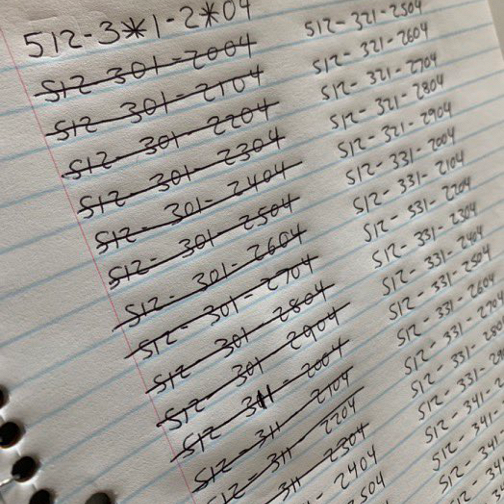 512-3*1-2*04
512-301-2004
512-301-2104
512-301-2204
512-301-2304
512-301-2404
512-301-2504
512-301-2604
512-301-2704
512-301-2804
512-301-2904
512-311-2004
512-311-2104
512-311-2204
311-2304
2404
2504
512-321-2504
512-321-2604
512-321-2704
512-321-2804
512-321-2904
512-331-2004
512-331-2104
512-331-2204
512-331-2304
512-331-2404
512-331-2504
512-331-2604
512-331-27
512-331-2
512-331-2
512-341-
512-341
512-34
512-34